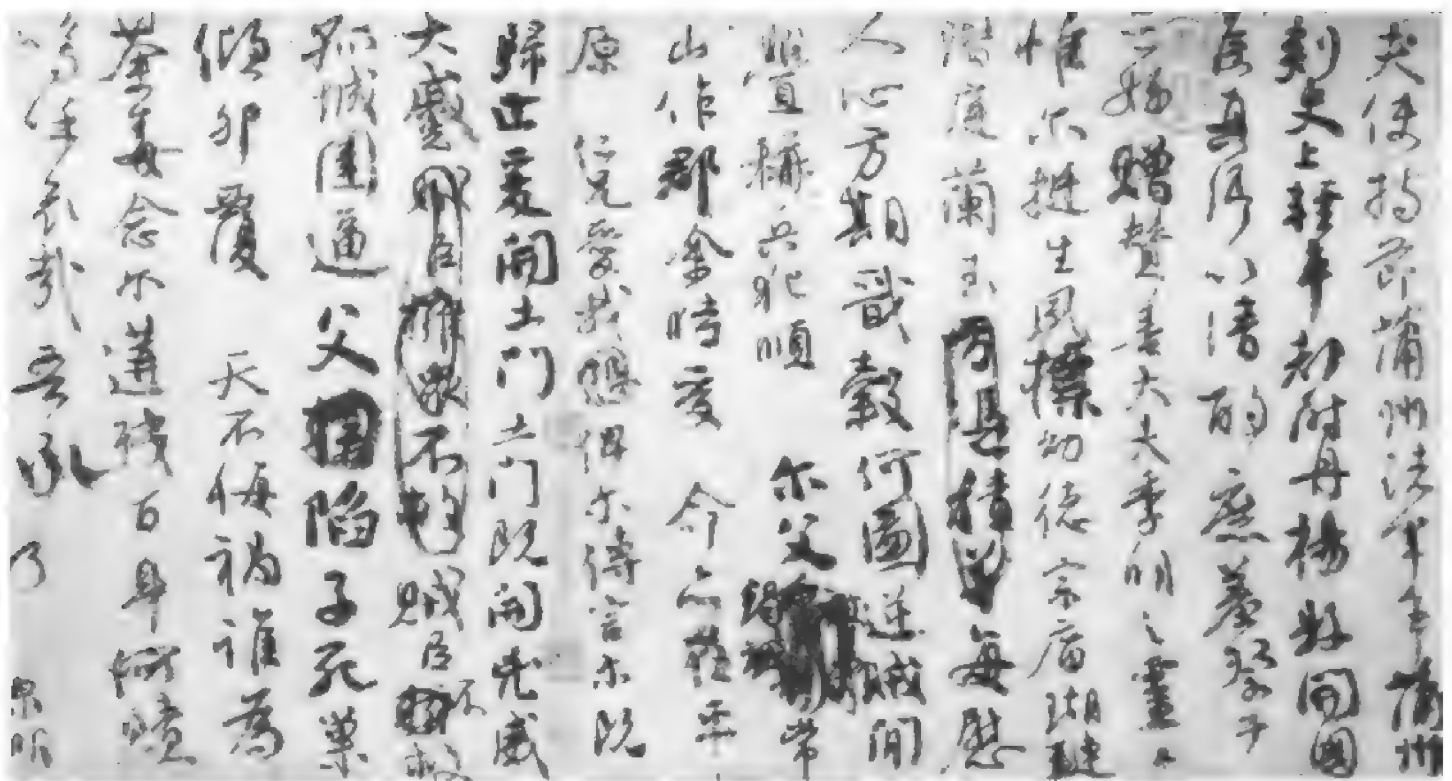 夫使持節蒲州諸軍事蒲州
刺史上輕車都尉丹楊縣開國
侯真卿以清酌庶羞祭于
亡姪贈贊善大夫季明之靈曰
惟尔挺生夙標幼德宗廟瑚璉
階庭蘭玉方憑積善每慰
人心方期戩穀何圖逆賊閒
釁稱兵犯順 尔父竭誠常
山作郡余時受 命亦在平
原 仁兄愛我俾尔傳言尔既
歸止爰開土門土門既開凶威
大蹙賊臣擁衆不救賊臣不救
孤城圍逼父陷子死巢
傾卵覆 天不悔禍誰為
荼毒念尔遘殘百身何贖
嗚乎哀哉吾承 泉明